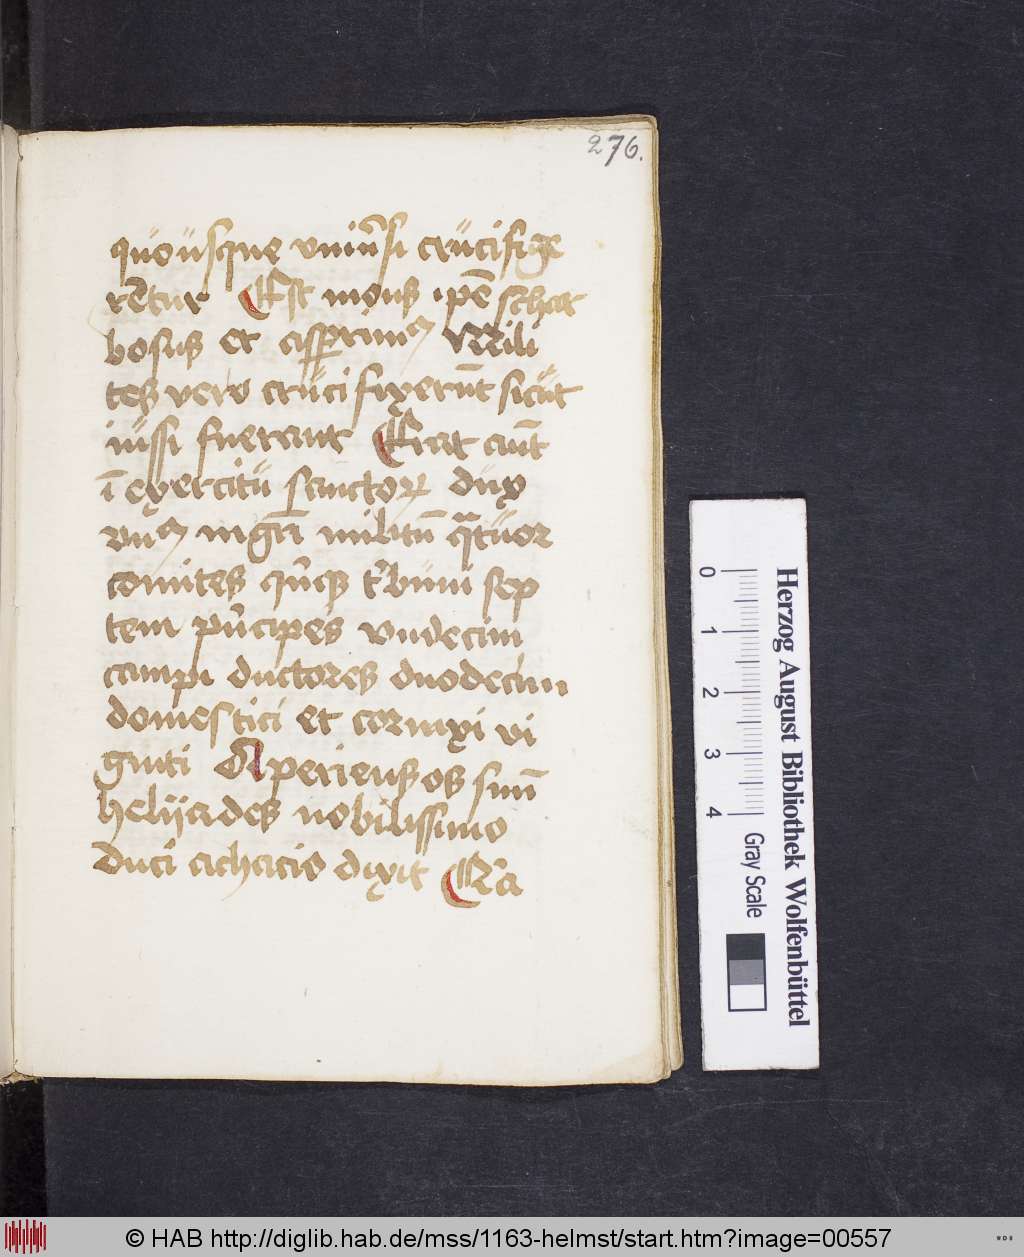 276.
quousque vniũsi crucifige
rẽtur Est mons ipẽ schar
bosus et asꝑrimꝰ Mili
tes vero crucifixerũt sicut
iussi fuerant Erat aũt
ĩ exercitu sanctoꝝ dux
vnꝰ mgr̃i militũ q̃tuor
comites qũqꝫ t̾buni sep
tem pñcipes vndecim
campi ductores duodecim
domestici et cornixi vi
ginti Aperiens os suũ
helyades nobilissimo
duci achacio dixit Cr̃a
Herzog August Bibliothek Wolfenbüttel
0 1 2 3 4
Gray Scale
© HAB http://diglib.hab.de/mss/1163-helmst/start.htm?image=00557